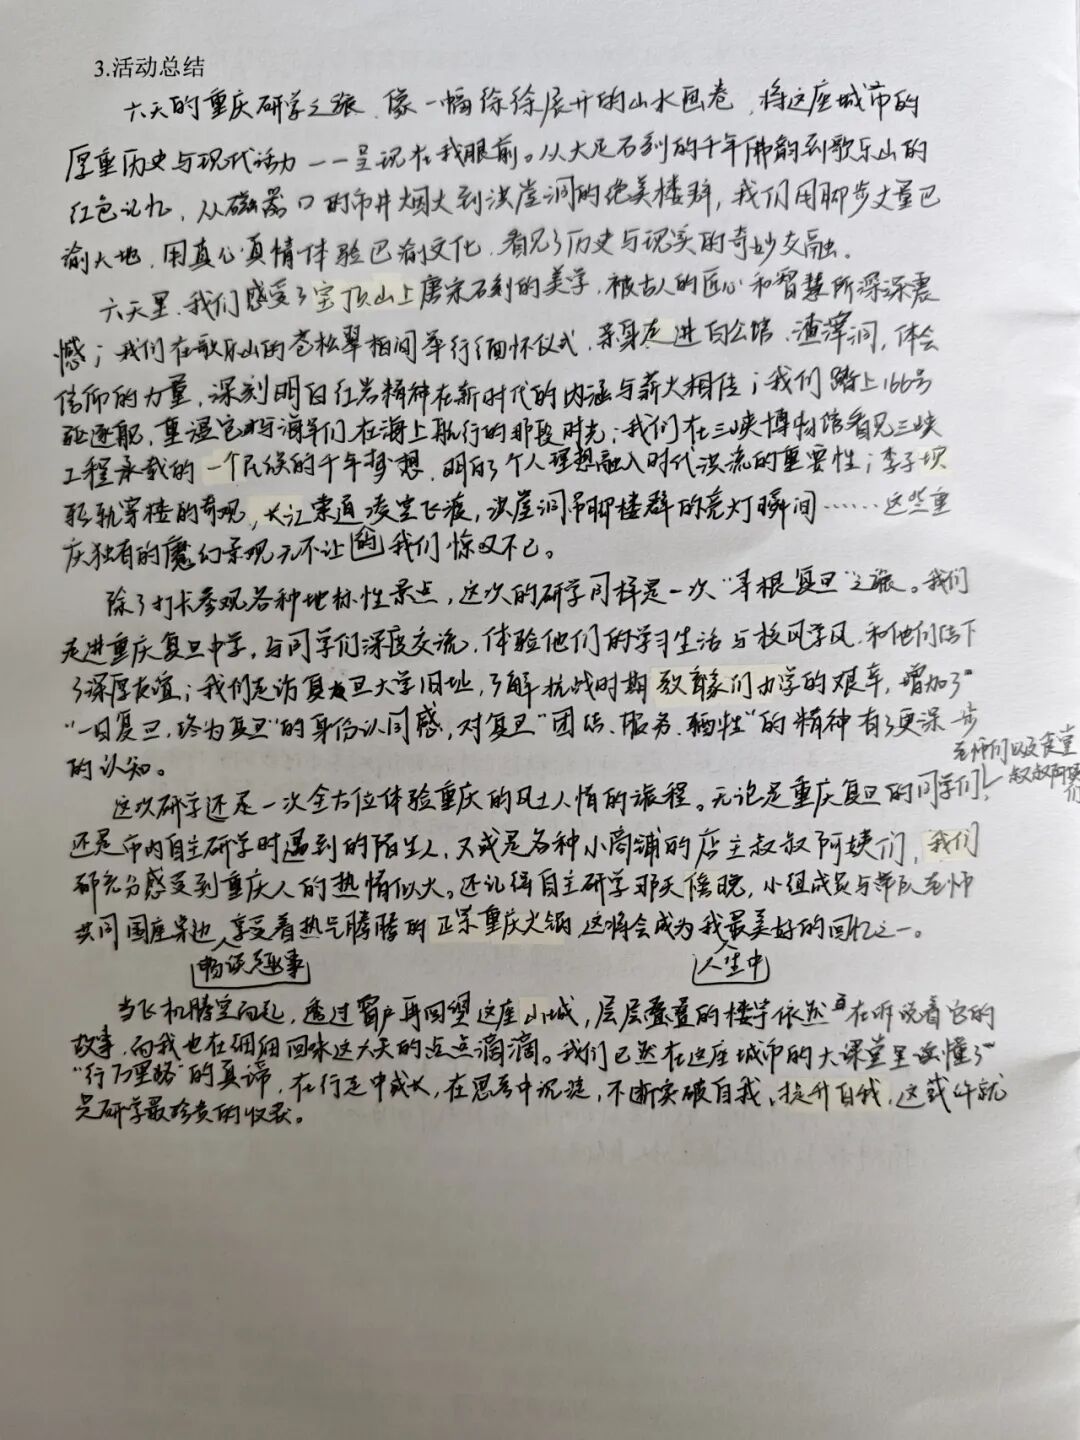 3.活动总结
六天的重庆研学之旅,像一幅徐徐展开的山水画卷,将这座城市的
厚重历史与现代活力一一呈现在我眼前。从大足石刻的千年佛韵到歌乐山的
红色记忆,从磁器口的市井烟火到洪崖洞的绝美楼群,我们用脚步丈量巴
渝大地,用真心真情体验巴渝文化,看见了历史与现实的奇妙交融。
六天里,我们感受了宝顶山上唐宋石刻的美学,被古人的匠心和智慧所深深震
憾;我们在歌乐山的苍松翠柏间举行缅怀仪式,亲身走进白公馆、渣滓洞,体会
信仰的力量,深刻明白红岩精神在新时代的内涵与薪火相传;我们踏上166号
驱逐舰,重温它与海军们在海上航行的那段时光;我们在三峡博物馆看见三峡
工程承载的一个民族的千年梦想,明白了个人理想融入时代洪流的重要性;李子坝
轻轨穿楼的奇观,长江索道凌空飞渡,洪崖洞吊脚楼群的亮灯瞬间……这些重
庆独有的魔幻景观无不让的我们惊叹不已。
除了打卡参观各种地标性景点,这次的研学同样是一次“寻根复旦”之旅。我们
走进重庆复旦中学,与同学们深度交流,体验他们的学习生活与校风学风,和他们结下
了深厚友谊;我们走访复旦大学旧址,了解抗战时期教育家们办学的艰辛,增加了
“一日复旦,终为复旦”的身份认同感,对复旦“团结、服务、牺牲”的精神有了更深一步
的认知。
这次研学还是一次全方位体验重庆的风土人情的旅程。无论是重庆复旦的同学们、
老师们以及食堂
叔叔阿姨们
还是市内自主研学时遇到的陌生人,又或是各种小商铺的店主叔叔阿姨们,我们
都充分感受到重庆人的热情似火。还记得自主研学那天傍晚,小组成员与带队老师
共同围座桌边,享受着热气腾腾的正宗重庆火锅,这将会成为我最美好的回忆之一。
畅谈趣事
人生中
当飞机腾空而起,透过窗户再回望这座山城,层层叠叠的楼宇依然在诉说着它的
故事,而我也在细细回味这六天的点点滴滴。我们已然在这座城市的大课堂里读懂了
“行万里路”的真谛,在行走中成长,在思考中沉淀,不断突破自我、提升自我,这或许就
是研学最珍贵的收获。